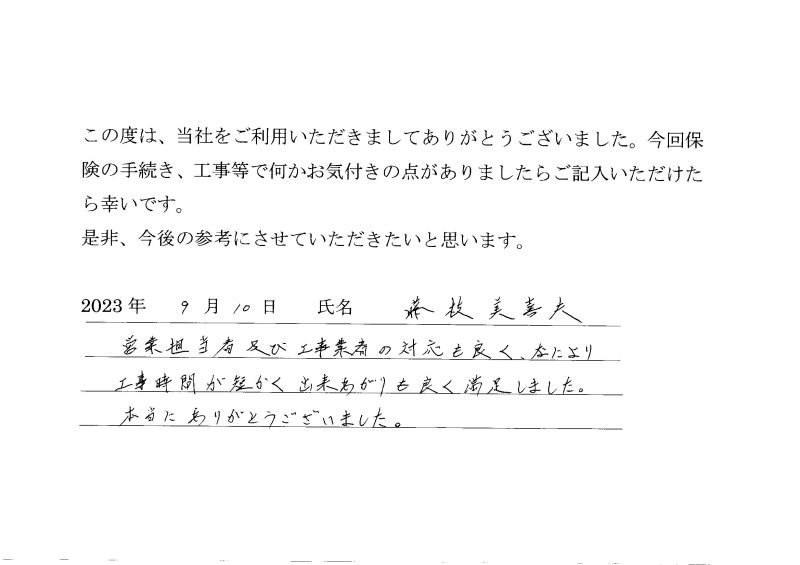 この度は、当社をご利用いただきましてありがとうございました。今回保
険の手続き、工事等で何かお気付きの点がありましたらご記入いただけた
ら幸いです。
是非、今後の参考にさせていただきたいと思います。
2023年 9月10日 氏名 藤枝美喜夫
営業担当者及び工事業者の対応も良く、なにより
工事時間が短かく出来あがりも良く満足しました。
本当にありがとうございました。